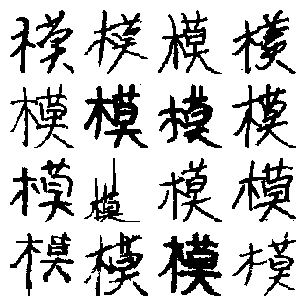 模模模模
模模模模
模模模模
模模模模